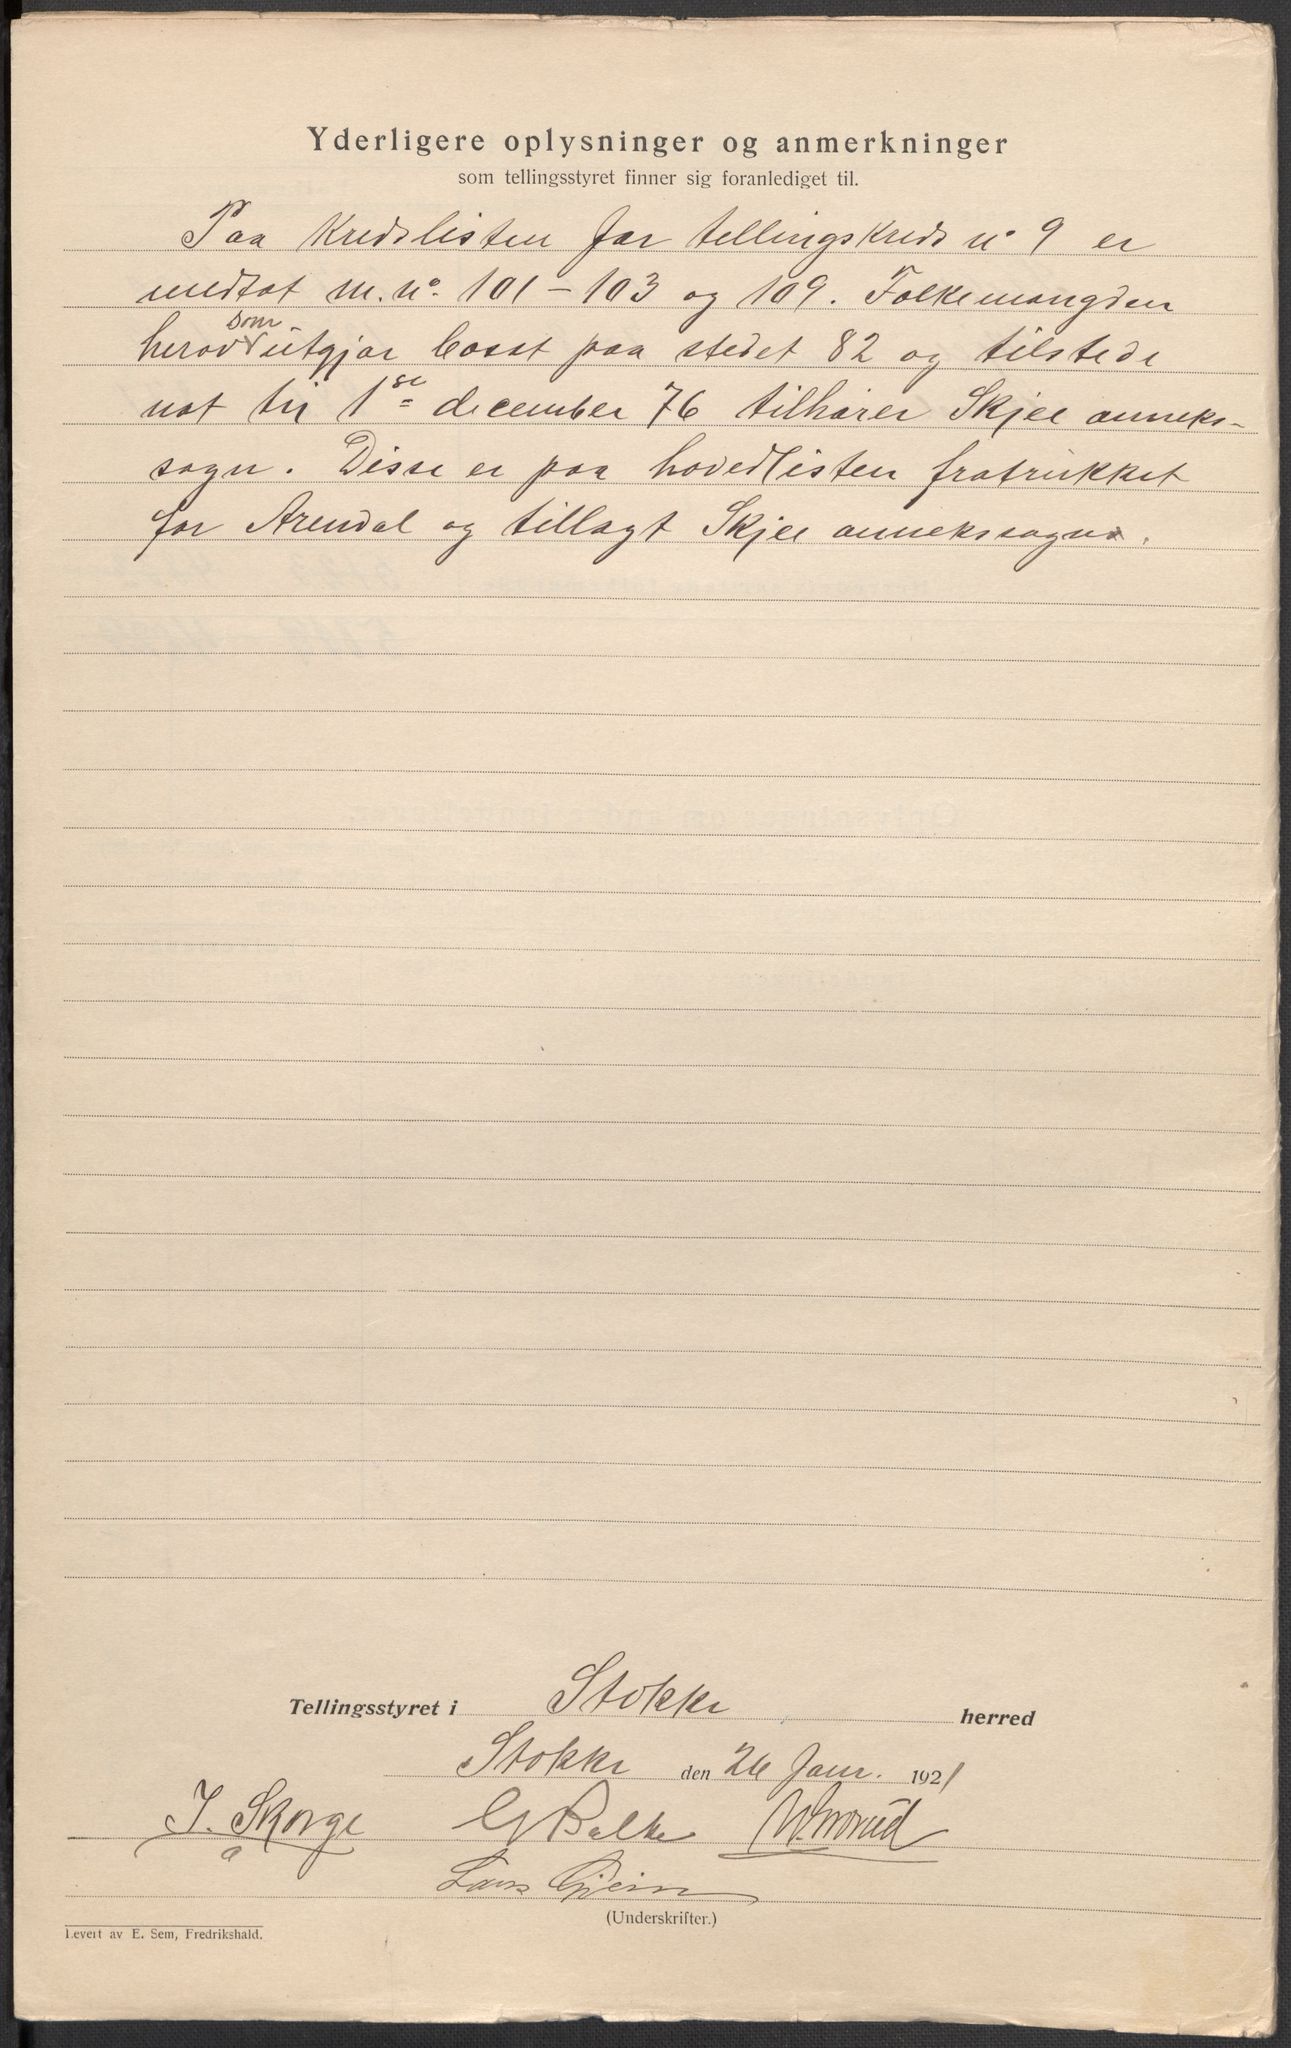 Yderligere oplysninger og anmerkninger
som tellingsstyret finner sig foranlediget til.
Paa Kredslisten for tellingskreds nº 9 er
medtat m. nº. 101 - 103 og 109. Folkemængden
herav som utgjør bosat paa stedet 82 og tilstede
nat til 1ste december 76 tilhører Skjee anneks-
sogn. Disse er paa hovedlisten fratrukket
for Arendal og tillagt Skjee annekssogn.
Tellingsstyret i Stokke herred
Stokke den 26 Janr. 1921
J. Skorge G Balke
Lars Gjein
(Underskrifter.)
Levert av E. Sem, Fredrikshald.